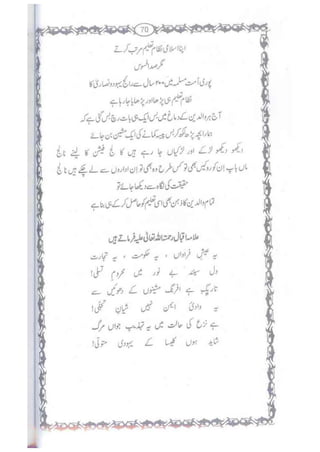 70
اپنا اسلامی نظام تعلیم مرتب کرتے
مگر صد افسوس
پوری اُمت مسلمہ میں ۲۰۰ سال سے رائج یہود و نصاریٰ کا
نظام تعلیم ہی پڑھا اور پڑھایا جا رہا ہے
آج ہر والدین کے دماغ میں بس ایک ہی بات رچ بس گئی ہے کہ
ہمارا بچہ پڑھ لکھ کر بس پیسہ کمانے کی ایک مشین بن جائے
دیکھو دیکھو لڑکے اور لڑکیاں جا رہے ہیں کالج فیشن کا لینے نالج
ماں باپ اِن کو روکیں بھی تو کس طرح وہ بھی تو اِن اداروں سے لے چکے ہیں نالج
حقیقت کی نگاہ سے دیکھا جائے تو
تمام والدین کا ذہن بھی اسی تعلیم کو حاصل کر کے ہی بنا ہے
علامہ اقبال رحمتہ اللہ تعالیٰ علیہ فرماتے ہیں
یہ عیشِ فراواں ، یہ حکومت ، یہ تجارت
دل سینہ بے نور میں محرومِ تسلی!
تاریک ہے افرنگ مشینوں کے دھوئیں سے
یہ وادیٔ ایمن نہیں شایانِ تجلی!
ہے نزع کی حالت میں یہ تہذیب جواں مرگ
شاید ہوں کلیسا کے یہودی متولی!